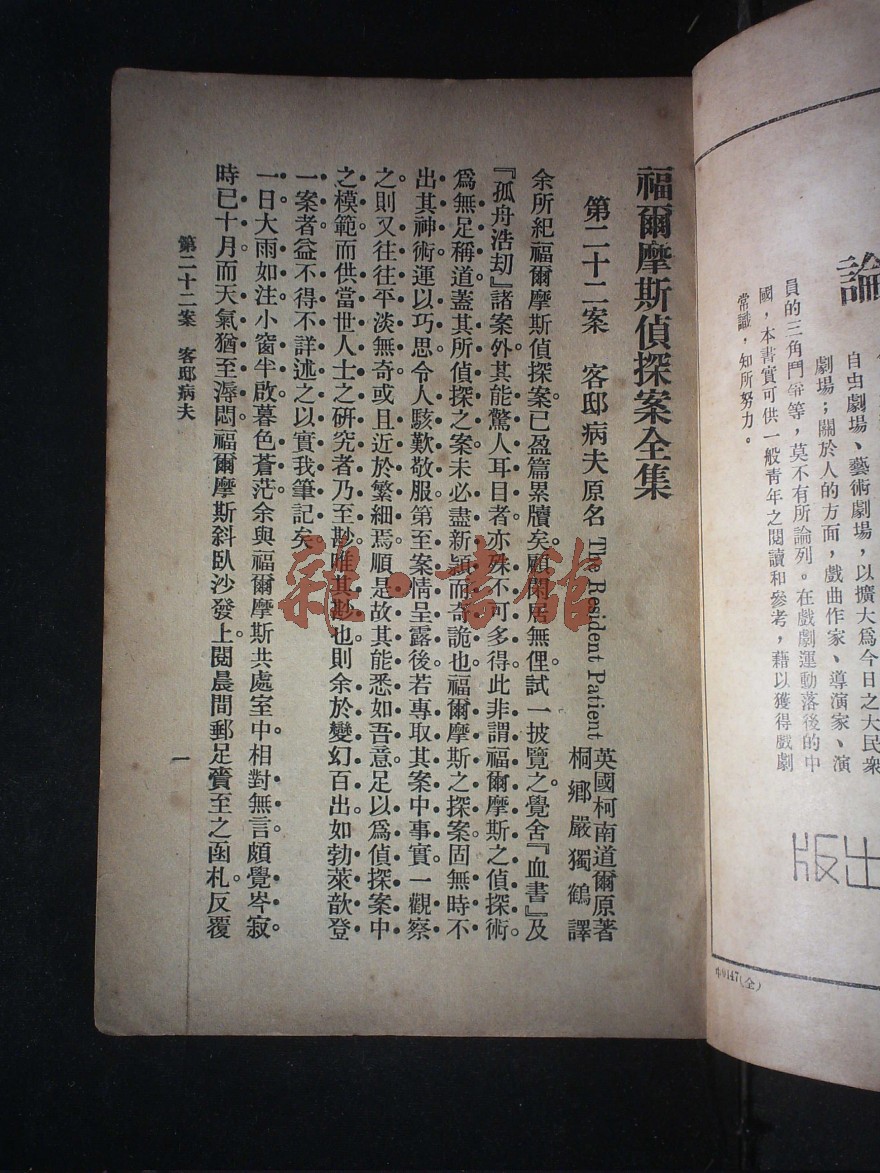 論
自由劇場、藝術劇場，以擴大爲今日之大民衆
劇場；關於人的方面，戲曲作家、導演家、演
員的三角鬥爭等，莫不有所論列。在戲劇運動落後的中
國，本書實可供一般青年之閱讀和參考，藉以獲得戲劇
常識，知所努力。
出版
福爾摩斯偵探案全集
第二十二案 客邸病夫原名 The Resident Patient
英國柯南道爾原著
桐鄉嚴獨鶴譯
余所紀福爾摩斯偵探案已盈篇累牘矣。顧閑居無俚。試一披覽之。覺舍『血書』及
『孤舟浩刧』諸案外。其能驚人耳目者。亦殊不可多得。此非謂福爾摩斯之偵探術。
爲無足稱道。蓋其所偵探之案。未必盡新穎而奇詭也。福爾摩斯之探案。固無時不
出其神術。運以巧思。令人駭歎敬服。第至案情呈露後。若專取其案中事實一觀察
之。則又往往平淡無奇。或且近於繁細焉。順是故其能悉如吾意。足以爲偵探案中
之模範。而供當世人士之研究者。乃至尠。唯其尠也。則余於變幻百出。如勃萊歆登
一案者。益不得不詳述之。以實我筆記矣。
一日大雨如注。小窗半啟。暮色蒼茫。余與福爾摩斯共處室中。相對無言。頗覺岑寂。
時已十月。而天氣猶至溽悶。福爾摩斯斜臥沙發上。閱晨間郵足賷至之函札。反覆
第二十二案 客邸病夫
一
雜·書館